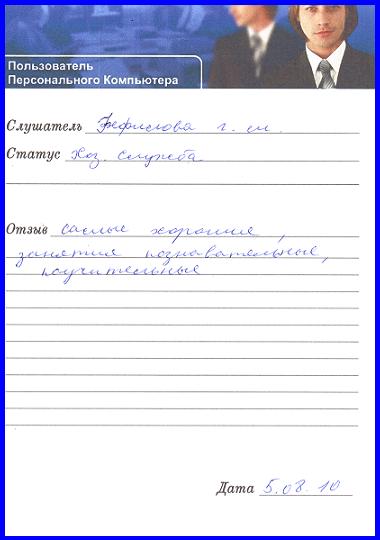 Пользователь
Персонального Компьютера
Слушатель Фефилова г. м.
Статус Хоз. служба
Отзыв самые хорошие,
занятия познавательные,
поучительные
Дата 5.08.10